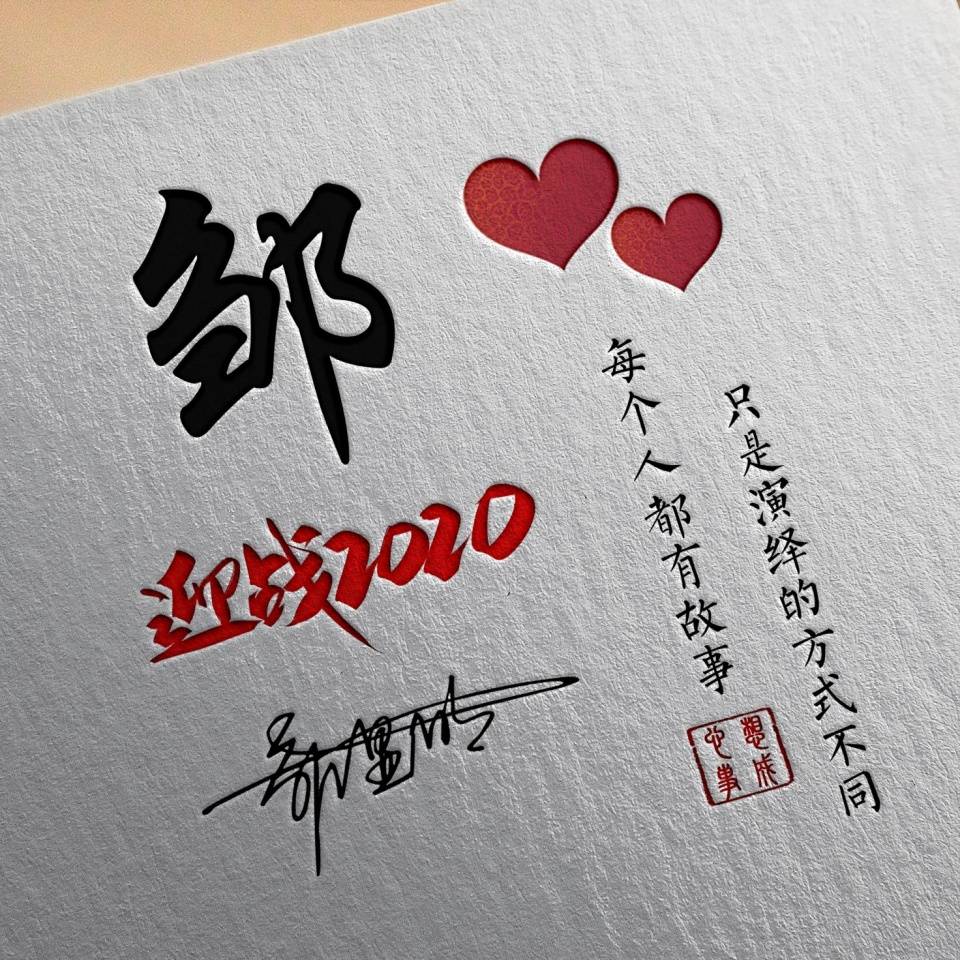 邹
迎战2020
每个人都有故事
只是演绎的方式不同
心想
事成